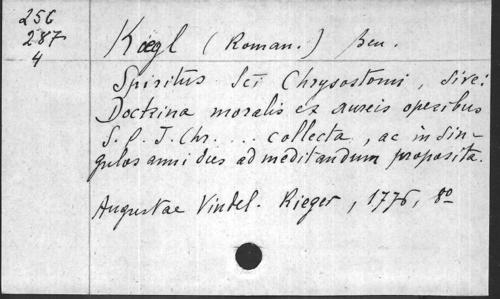 256
287
4
Kœgl (Roman.) Ben.
Spiritus Sci Chrysostomi, sive:
Doctrina moralis ex aureis operibus
S. P. J. Chr. ... collecta, ac in sin-
gulos anni dies ad meditandum proposita.
Augustae Vindel. Rieger, 1776, 8º